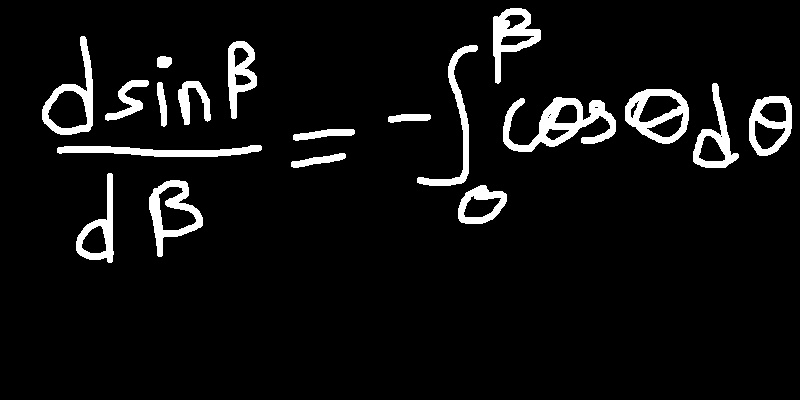 \frac{d \sin \beta}{d \beta} = - \int_{0}^{\beta} \cos \theta d \theta